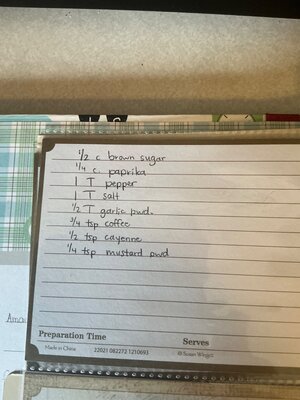 1/2 c brown sugar
1/4 c. paprika
1 T pepper
1 T salt
1/2 T garlic pwd.
3/4 tsp coffee
1/2 tsp cayenne
1/4 tsp mustard pwd
Preparation Time
Serves
Made in China
22021 082272 1210693